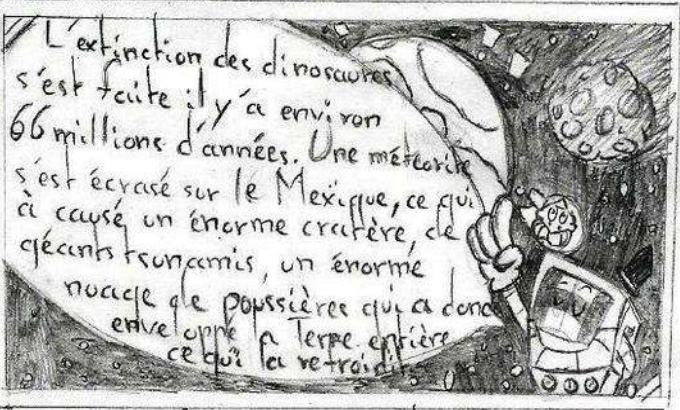 L'extinction des dinosaures
s'est faite il y'a environ
66 millions d'années. Une météorite
s'est écrasé sur le Mexique, ce qui
à causé un énorme cratère, de
géants tsunamis, un énorme
nuage de poussières qui a donc
enveloppé la Terre entière
ce qui la refroidit.